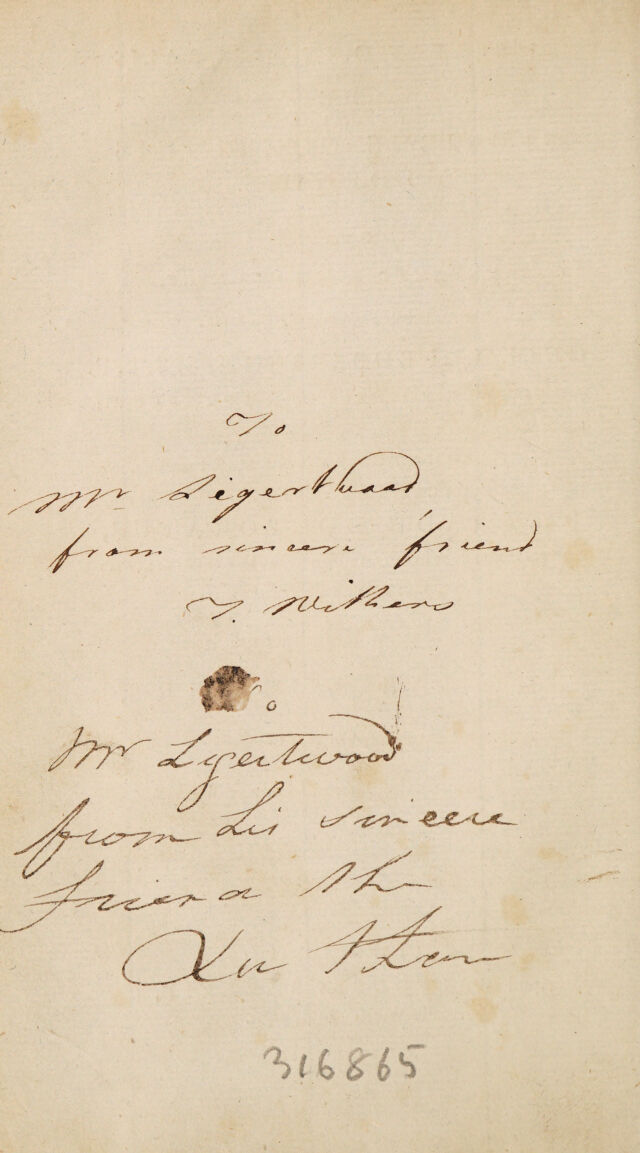 To
Mr Ligertwood
from sincere friend
T. Withers
To
Mr Lgertwood
from his sincere
friend the
Author
316865